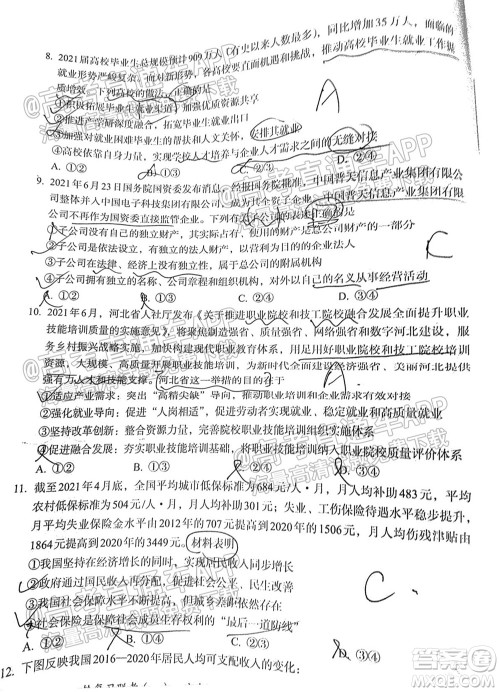 8. 2021届高校毕业生总规模预计909万人（有史以来人数最多），同比增加35万人，面临的
就业形势严峻复杂。面对新形势，各高校要直面机遇和挑战，推动高校毕业生就业工作提
质增效。下列高校的做法，正确的是
①积极拓展毕业生就业渠道，实现优质资源共享
②推进产学研深度融合，拓宽毕业生就业出口
③加大对就业困难毕业生的帮扶和人文关怀，安排其就业
④高校依靠自身力量，实现学校人才培养与企业人才需求之间的无缝对接
A. ①② B. ①③ C. ②④ D. ③④
A
9. 2021年6月23日国务院国资委发布消息，经报国务院批准，中国普天信息产业集团有限公
司整体并入中国电子科技集团有限公司，成为其全资子企业。中国普天信息产业集团有限
公司不再作为国资委直接监管企业。下列对子公司的认识正确的是
①子公司没有独立的法人财产，子公司的财产是总公司财产的一部分
②子公司自主经营，有独立的法人财产，以此承担有限责任
③子公司在法律、经济上没有独立性，是总公司的附属机构
④子公司拥有独立的名称、公司章程和组织机构，对外以自己的名义从事经营活动
A. ①② B. ①③ C. ②④ D. ③④
C
10. 2021年6月，河北省人社厅发布《关于推进职业院校和技工院校融合发展全面提升职业
技能培训质量的实施意见》，紧紧围绕创新驱动、质量强省、网络强省和数字河北建设，服
务乡村振兴战略实施，加快构建现代职业教育体系，用足用好职业院校和技工院校培训
资源，大规模开展职业技能培训，为全面建设新时代经济强省、美丽河北提供
强有力人才和技能支撑。河北省这一举措的目的在于
①适应产业需求：突出“高精尖缺”导向，实现技能培训与企业人才需求有效对接
②强化就业导向：促进“人岗相适”，实现更加充分的就业，稳定就业和高质量就业
③坚持改革创新：整合培训力量，完善院校职业技能培训组织实施体系
④促进融合发展：夯实职业技能培训基础，将职业技能培训纳入职业院校质量评价体系
A. ①② B. ①③ C. ②④ D. ③④
A
11. 截至2021年4月底，全国平均城市低保标准为684元/人·月，月人均补助483元，平均
农村低保标准为504元/人·月，月人均补助301元；失业、工伤保险待遇水平稳步提升，
月平均失业保险金水平由2012年的707元提高到2020年的1506元，月人均伤残津贴由
1864元提高到2020年的3449元。材料表明
①我国坚持在经济增长的同时，实现居民收入同步增长
②政府通过国民收入再分配，促进社会公平，民生改善
③我国社会保障水平不断提升，且与经济发展相适应
④我国社会保障是社会成员生存权利的“最后一道防线”
A. ①② B. ①④ C. ②③ D. ③④
C.
12. 下图反映我国2016—2020年居民人均可支配收入的变化：